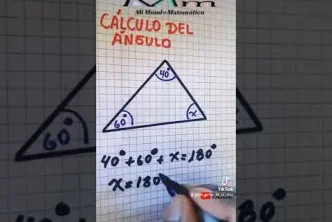 Mi Mundo Matemático
CÁLCULO DEL
ÁNGULO
40°
60°
x
40° + 60° + x = 180°
x = 180
TikTok